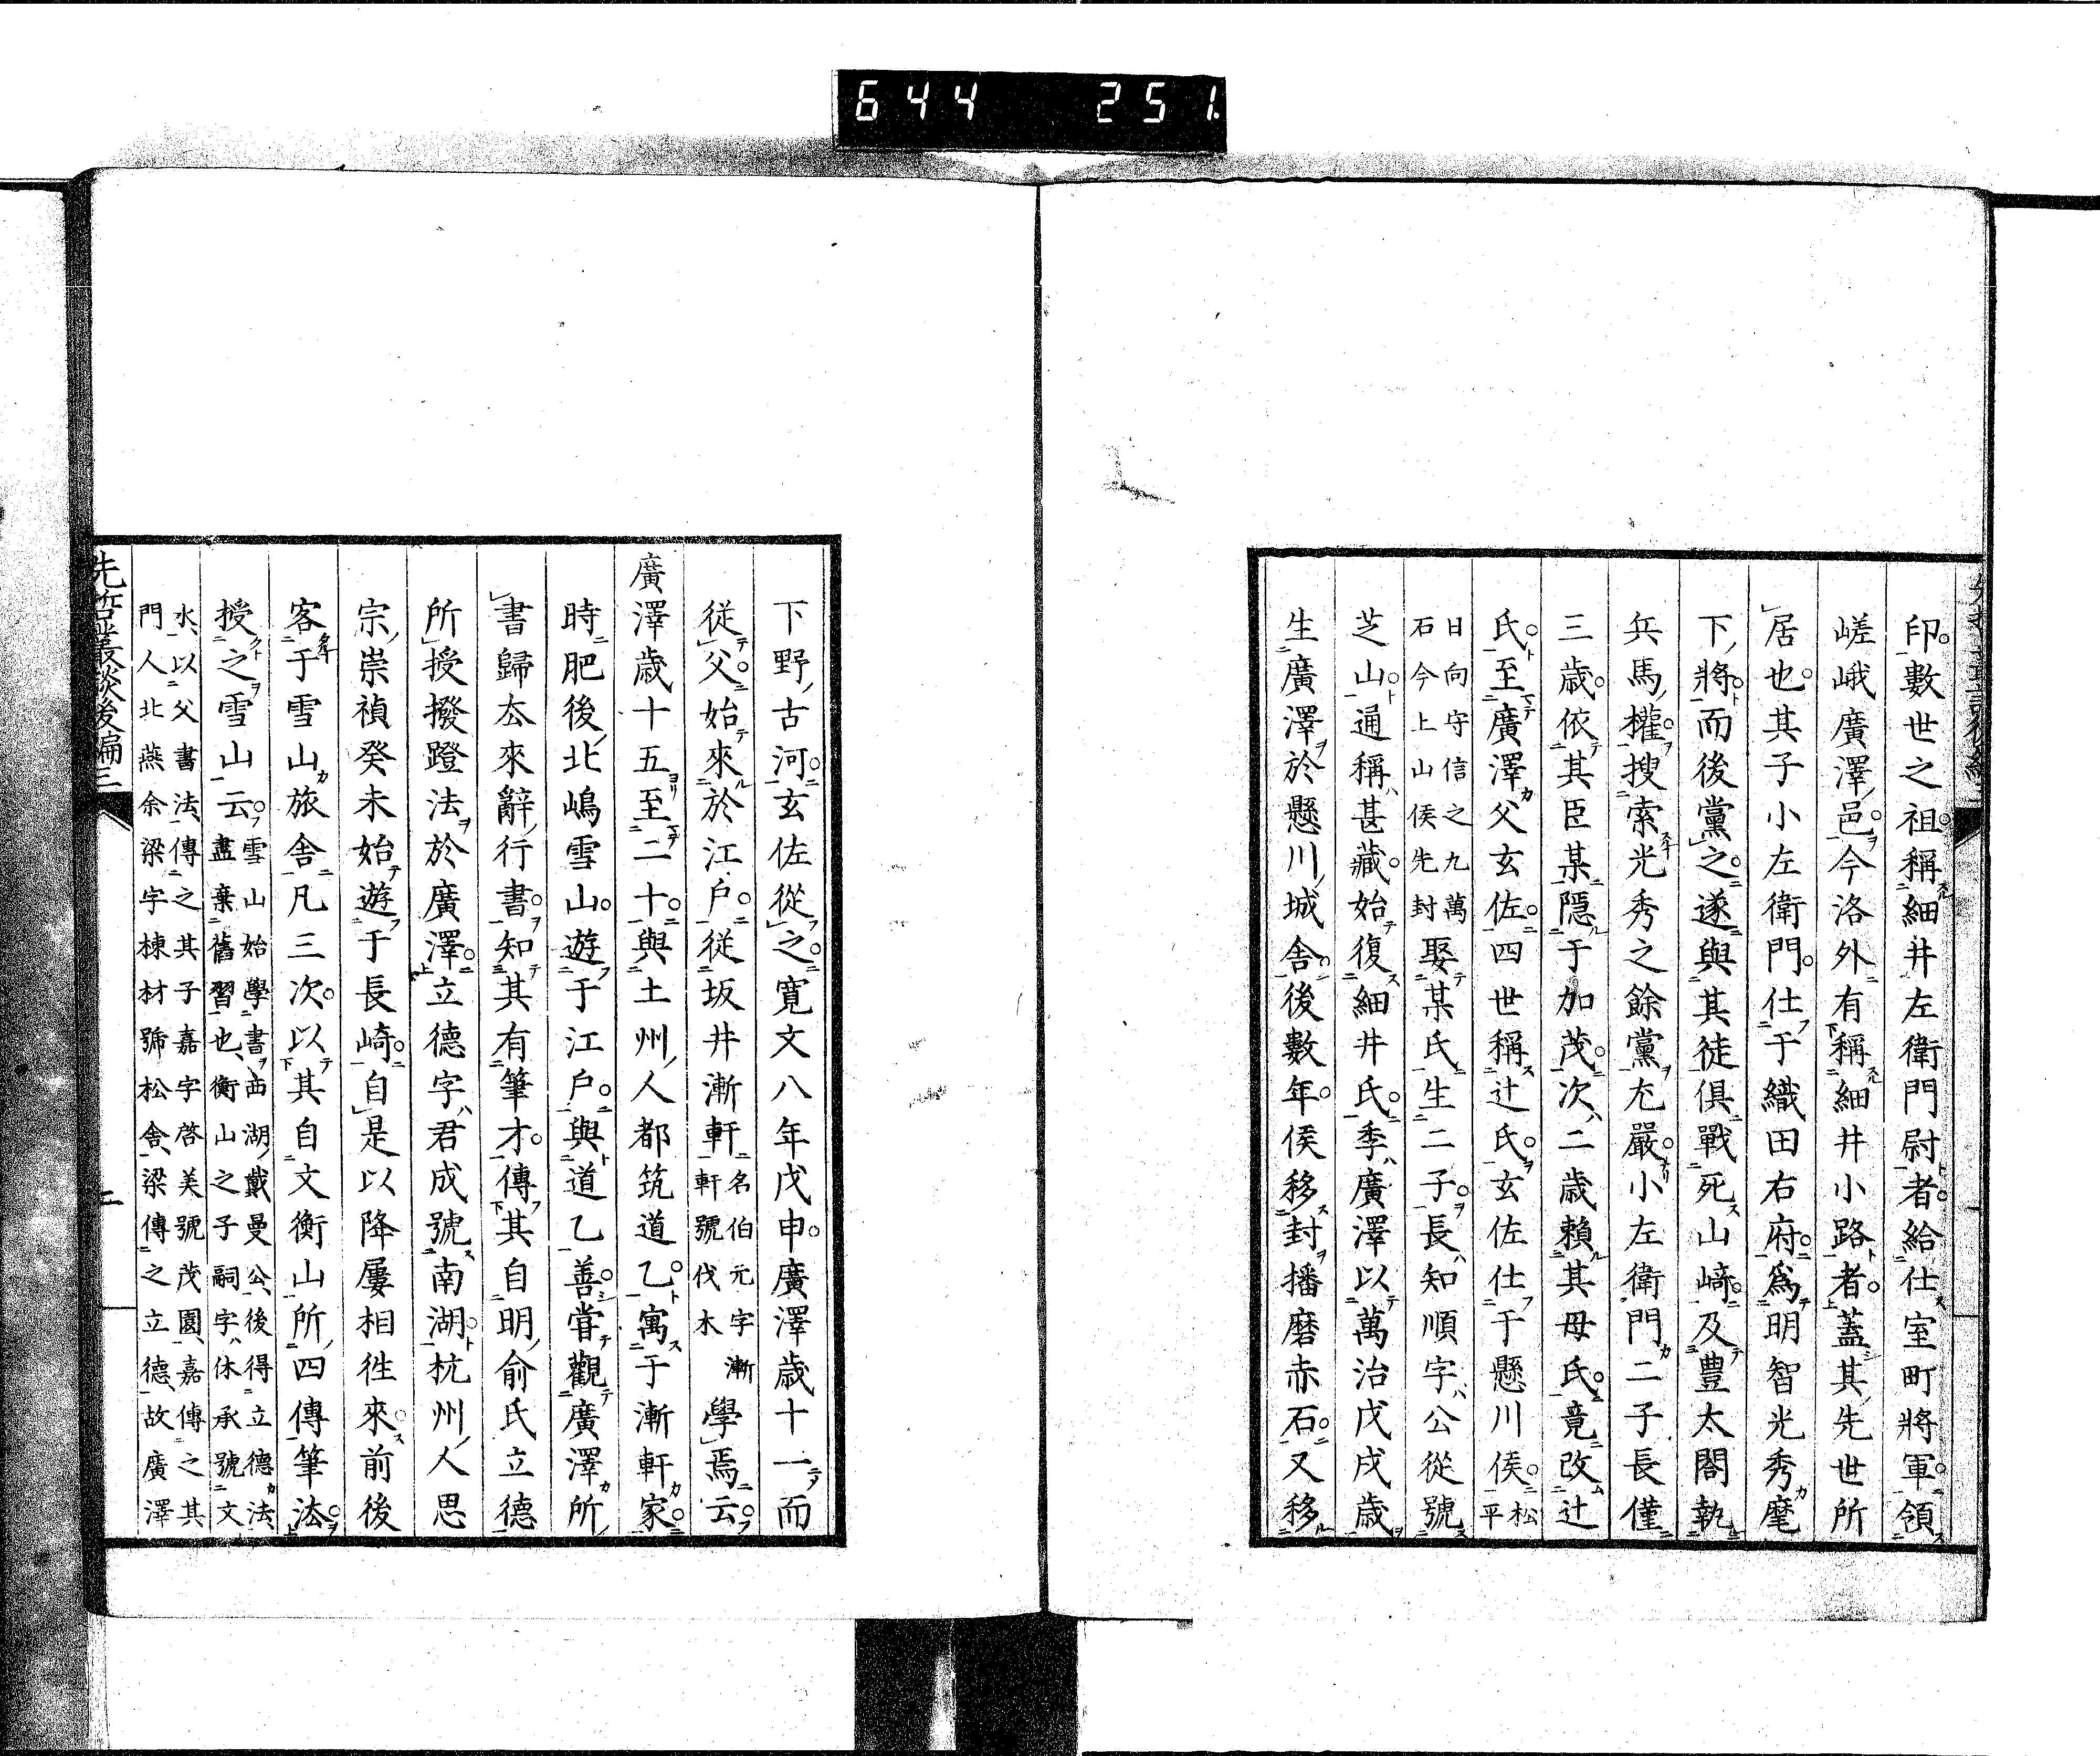 644 251.
印數世之祖稱細井左衛門尉者給仕室町將軍領
嵯峨廣澤邑今洛外有稱細井小路者蓋其先世所
居也其子小左衛門仕于織田右府爲明智光秀麾
下將而後黨之遂與其徒俱戰死山﨑及豊太閤執
兵馬權搜索光秀之餘黨尤嚴小左衛門二子長僅
三歳依其臣某隱于加茂次二歳賴其母氏竟改辻
氏至廣澤父玄佐四世稱辻氏玄佐仕于懸川侯松平
日向守信之九萬石今上山侯先封娶某氏生二子長知順字公從號
芝山通稱甚藏始復細井氏季廣澤以萬治戊戌歳
生廣澤於懸川城舎後數年侯移封播磨赤石又移
下野古河玄佐從之寛文八年戊申廣澤歳十一而
從父始來於江戸從坂井漸軒名伯元字漸軒號伐木學焉云
廣澤歳十五至二十與土州人都筑道乙寓于漸軒家
時肥後北嶋雪山遊于江戸與道乙善嘗觀廣澤所
書歸去來辭行書知其有筆才傳其自明俞氏立德
所授撥蹬法於廣澤立德字君成號南湖杭州人思
宗崇禎癸未始遊于長崎自是以降屢相徃來前後
客于雪山旅舎凡三次以其自文衡山所四傳筆法
授之雪山云雪山始學書西湖戴曼公後得立德法盡棄舊習也衡山之子嗣字休承號文
水以父書法傳之其子嘉字啓美號茂園嘉傳之其門人北燕余梁字棟材號松舎梁傳之立德故廣澤
先哲叢談後編三
二